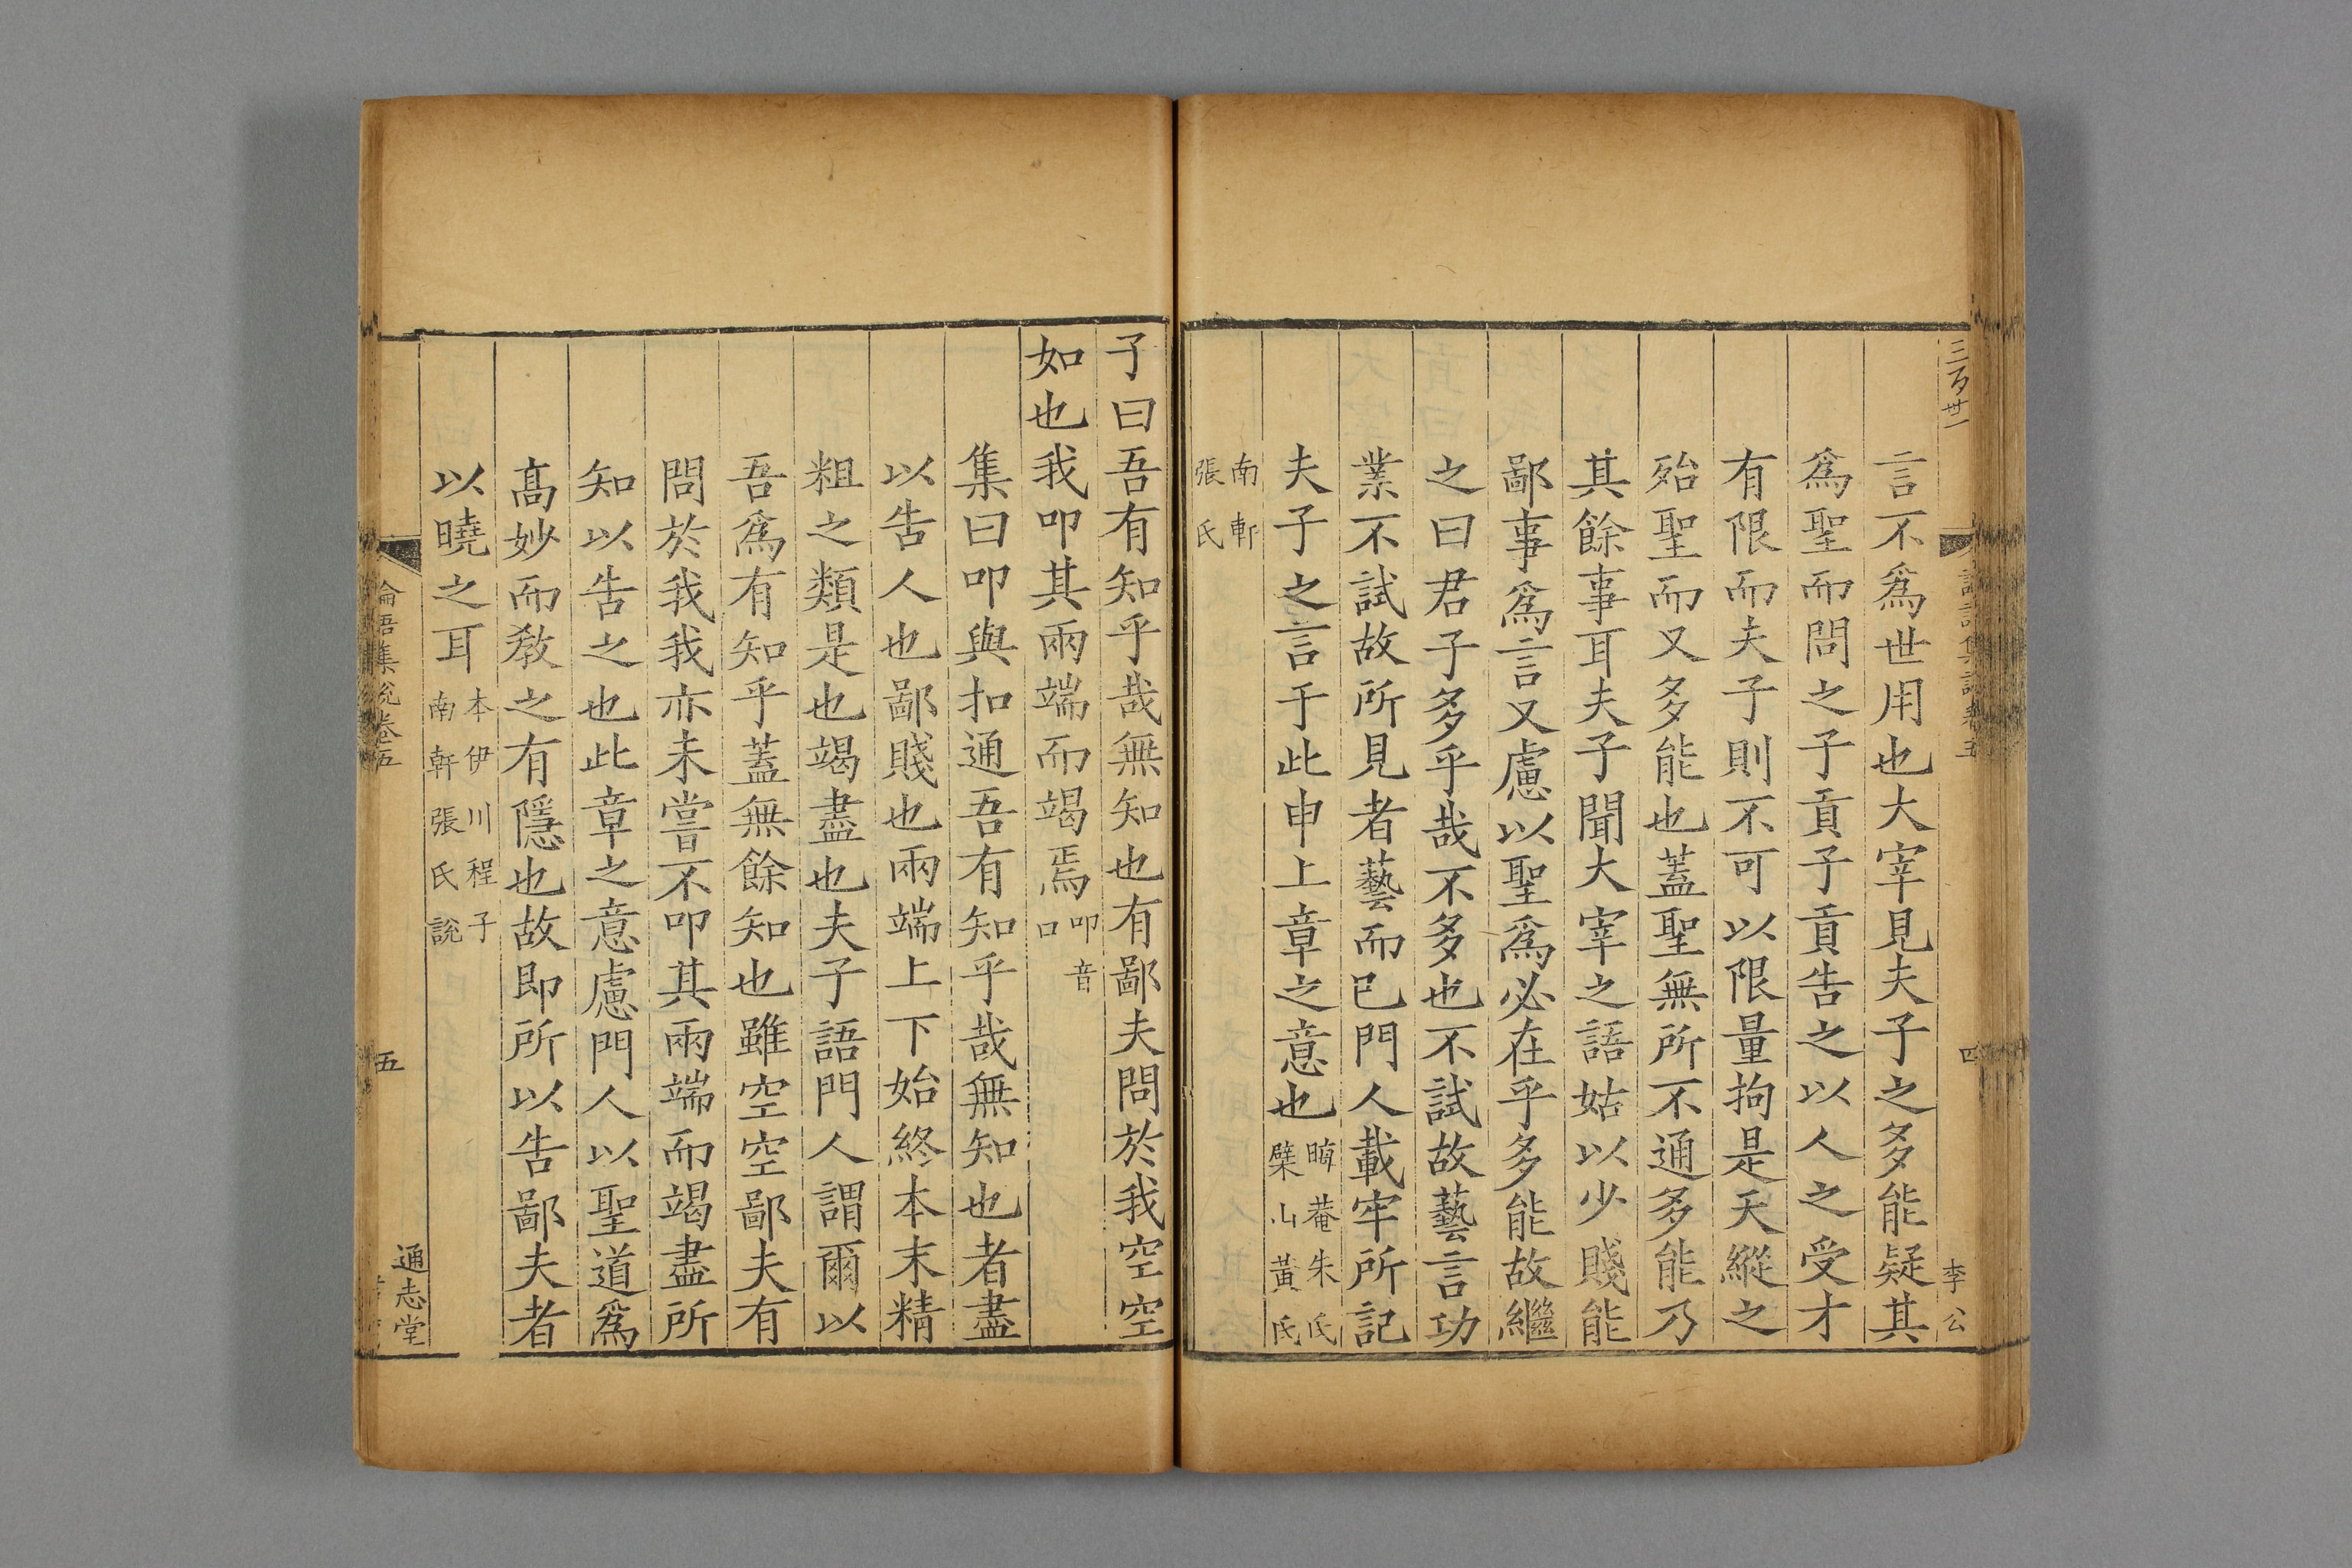 三百卅一
言不爲世用也大宰見夫子之多能疑其
爲聖而問之子貢子貢告之以人之受才
有限而夫子則不可以限量拘是天縱之
殆聖而又多能也蓋聖無所不通多能乃
其餘事耳夫子聞大宰之語姑以少賤能
鄙事爲言又慮以聖爲必在乎多能故繼
之曰君子多乎哉不多也不試故藝言功
業不試故所見者藝而已門人載牢所記
夫子之言于此申上章之意也
晦菴朱氏
檗山黃氏
南軒
張氏
四
李公
子曰吾有知乎哉無知也有鄙夫問於我空空
如也我叩其兩端而竭焉
叩音
口
集曰叩與扣通吾有知乎哉無知也者盡
以告人也鄙賤也兩端上下始終本末精
粗之類是也竭盡也夫子語門人謂爾以
吾爲有知乎蓋無餘知也雖空空鄙夫有
問於我我亦未嘗不叩其兩端而竭盡所
知以告之也此章之意慮門人以聖道爲
高妙而教之有隱也故即所以告鄙夫者
以曉之耳
本伊川程子
南軒張氏說
論語集說卷五
五
通志堂